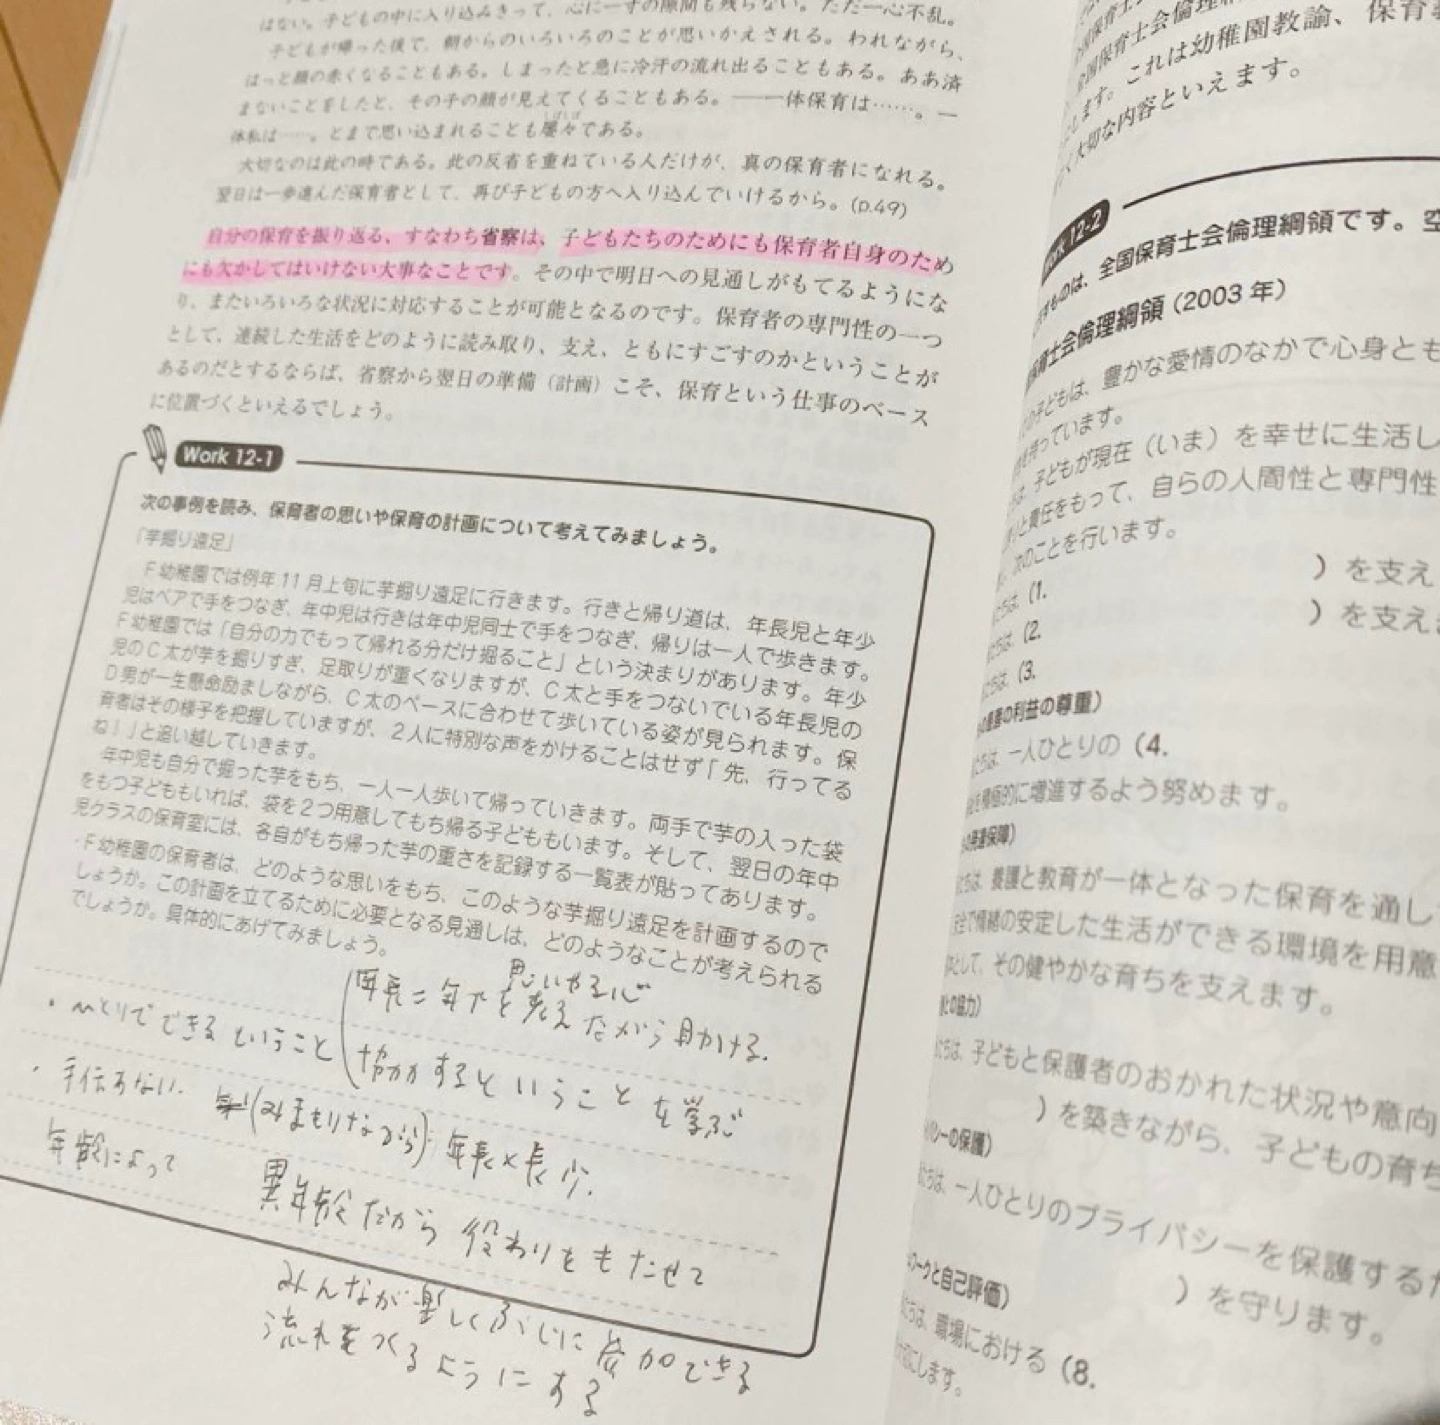 はない。子どもの中に入り込みきって、心に一寸の隙間も残らない。ただ一心不乱。
子どもが帰った後で、朝からのいろいろのことが思いかえされる。われながら、
はっと顔の赤くなることもある。しまったと急に冷汗の流れ出ることもある。ああ済
まないことをしたと、その子の顔が見えてくることもある。――一体保育は……。一
体私は……。とまで思い込まれることも屡々である。
大切なのは此の時である。此の反省を重ねている人だけが、真の保育者になれる。
翌日は一歩進んだ保育者として、再び子どもの方へ入り込んでいけるから。(p.49)
自分の保育を振り返る、すなわち省察は、子どもたちのためにも保育者自身のため
にも欠かしてはいけない大事なことです。その中で明日への見通しがもてるようにな
り、またいろいろな状況に対応することが可能となるのです。保育者の専門性の一つ
として、連続した生活をどのように読み取り、支え、ともにすごすのかということが
あるのだとするならば、省察から翌日の準備（計画）こそ、保育という仕事のベース
に位置づくといえるでしょう。
Work 12-1
次の事例を読み、保育者の思いや保育の計画について考えてみましょう。
「芋掘り遠足」
F幼稚園では例年11月上旬に芋掘り遠足に行きます。行きと帰り道は、年長児と年少
児はペアで手をつなぎ、年中児は行きは年中児同士で手をつなぎ、帰りは一人で歩きます。
F幼稚園では「自分の力でもって帰れる分だけ掘ること」という決まりがあります。年少
児のC太が芋を掘りすぎ、足取りが重くなりますが、C太と手をつないでいる年長児の
D男が一生懸命励ましながら、C太のペースに合わせて歩いている姿が見られます。保
育者はその様子を把握していますが、2人に特別な声をかけることはせず「先、行ってる
ね！」と追い越していきます。
年中児も自分で掘った芋をもち、一人一人歩いて帰っていきます。両手で芋の入った袋
をもつ子どももいれば、袋を2つ用意してもち帰る子どももいます。そして、翌日の年中
児クラスの保育室には、各自がもち帰った芋の重さを記録する一覧表が貼ってあります。
・F幼稚園の保育者は、どのような思いをもち、このような芋掘り遠足を計画するので
しょうか。この計画を立てるために必要となる見通しは、どのようなことが考えられる
でしょうか。具体的にあげてみましょう。
思いやる心
年長＝年下を考えながら助ける.
・ひとりでできるということ
協力するということを学ぶ
・手伝わない. (みまもりながら) 年長×長少.
年齢によって
異年齢だから役わりをもたせて
みんなが楽しくぶじに参加できる
流れをつくるようにする
全国保育士会倫理綱
します。これは幼稚園教諭、保育
大切な内容といえます。
12-2
ものは、全国保育士会倫理綱領です。空
育士会倫理綱領（2003年）
子どもは、豊かな愛情のなかで心身とも
持っています。
は、子どもが現在（いま）を幸せに生活し
と責任をもって、自らの人間性と専門性
次のことを行います。
ちは、(1.　　　）を支え
ちは、(2.　　　）を支え
ちは、(3.
の利益の尊重）
ちは、一人ひとりの（4.
積極的に増進するよう努めます。
の発達保障）
ちは、養護と教育が一体となった保育を通し
安全で情緒の安定した生活ができる環境を用意
として、その健やかな育ちを支えます。
との協力）
ちは、子どもと保護者のおかれた状況や意向
）を築きながら、子どもの育ち
シーの保護）
ちは、一人ひとりのプライバシーを保護するた
）を守ります。
ワークと自己評価）
ちは、職場における（8.
にします。